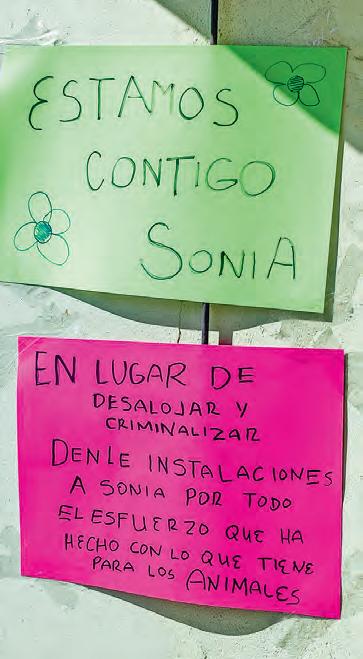 ESTAMOS
CONTIGO
SONIA
EN LUGAR DE
DESALOJAR Y
CRIMINALIZAR
DENLE INSTALACIONES
A SONIA POR TODO
EL ESFUERZO QUE HA
HECHO CON LO QUE TIENE
PARA LOS ANIMALES